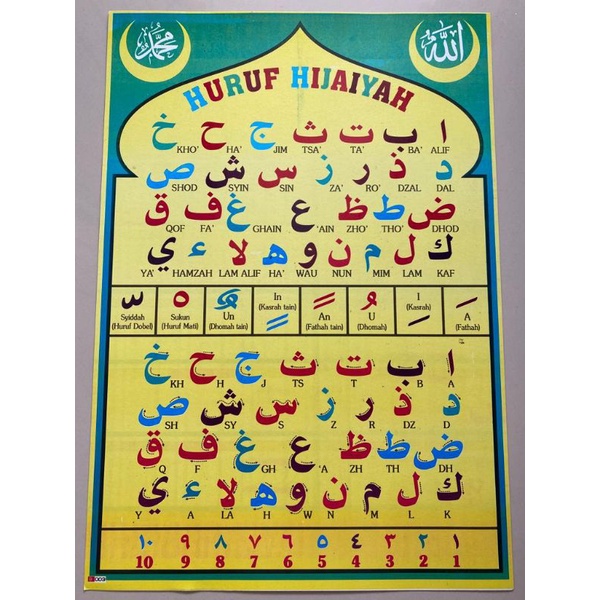 محمد
الله
HURUF HIJAIYAH
ا ب ت ث ج ح خ
KHO' HA' JIM TSA' TA' BA' ALIF
د ذ ر ز س ش ص
SHOD SYIN SIN ZA' RO' DZAL DAL
ض ط ظ ع غ ف ق
QOF FA' GHAIN 'AIN ZHO' THO' DHOD
ك ل م ن و ه لا ء ي
YA' HAMZAH LAM ALIF HA' WAU NUN MIM LAM KAF
Syiddah
(Huruf Dobel)
Sukun
(Huruf Mati)
Un
(Dhomah tain)
In
(Kasrah tain)
An
(Fathah tain)
U
(Dhomah)
I
(Kasrah)
A
(Fathah)
ا ب ت ث ج ح خ
KH H J TS T B A
د ذ ر ز س ش ص
SH SY S Z R DZ D
ض ط ظ ع غ ف ق
Q F GH 'A ZH TH DH
ك ل م ن و ه لا ء ي
Y A LA H W N M L K
١٠ ٩ ٨ ٧ ٦ ٥ ٤ ٣ ٢ ١
10 9 8 7 6 5 4 3 2 1